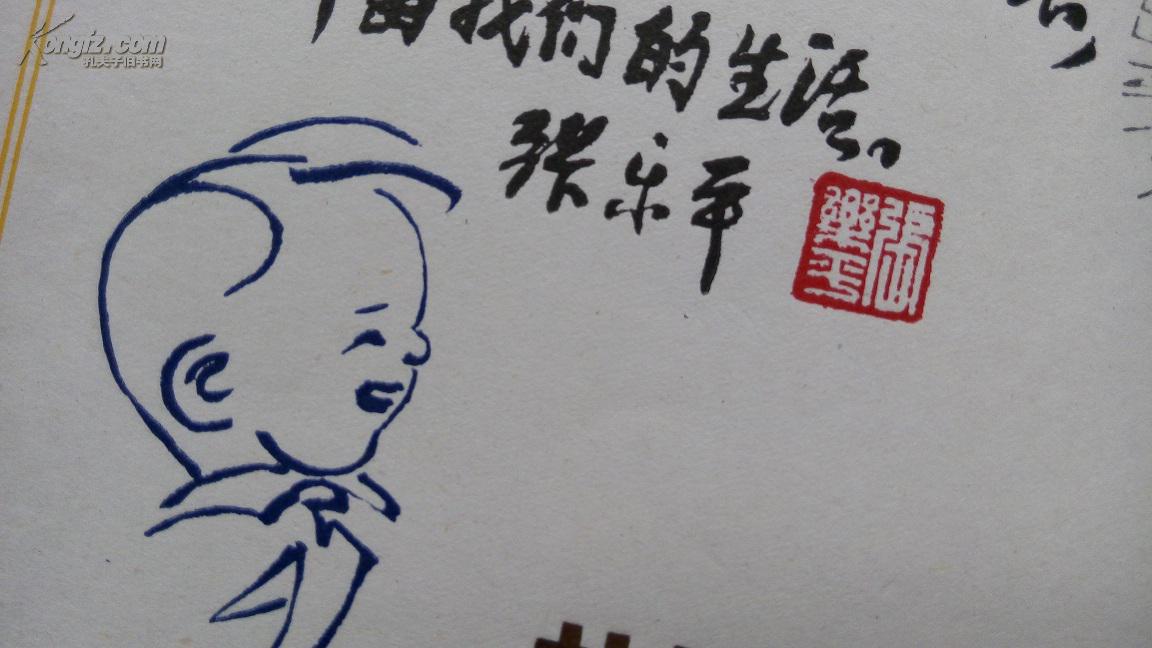 Kongfz.com
孔夫子旧书网
富我们的生活。
张乐平
張樂平